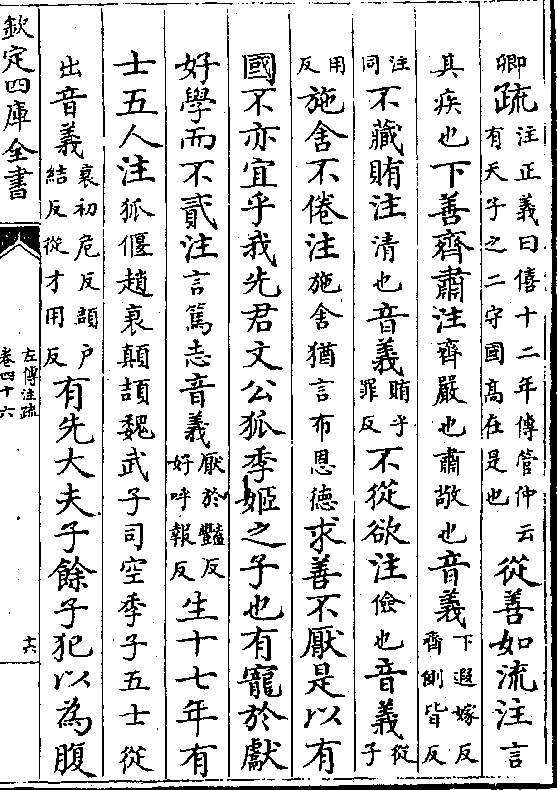 卿疏注正義曰僖十二年傳管仲云有天子之二守國高在是也從善如流注言
其疾也下善齊肅注齊嚴也肅敬也音義下遐嫁反齊側皆反
注同不藏賄注清也音義賄乎罪反不從欲注儉也音義從子
用反施舍不倦注施舍猶言布恩德求善不厭是以有
國不亦宜乎我先君文公狐季姬之子也有寵於獻
好學而不貳注言篤志音義厭於豔反好呼報反生十七年有
士五人注狐偃趙衰顛頡魏武子司空季子五士從
出音義衰初危反頡户結反從才用反有先大夫子餘子犯以為腹
欽定四庫全書
左傳注疏
卷四十六
十六